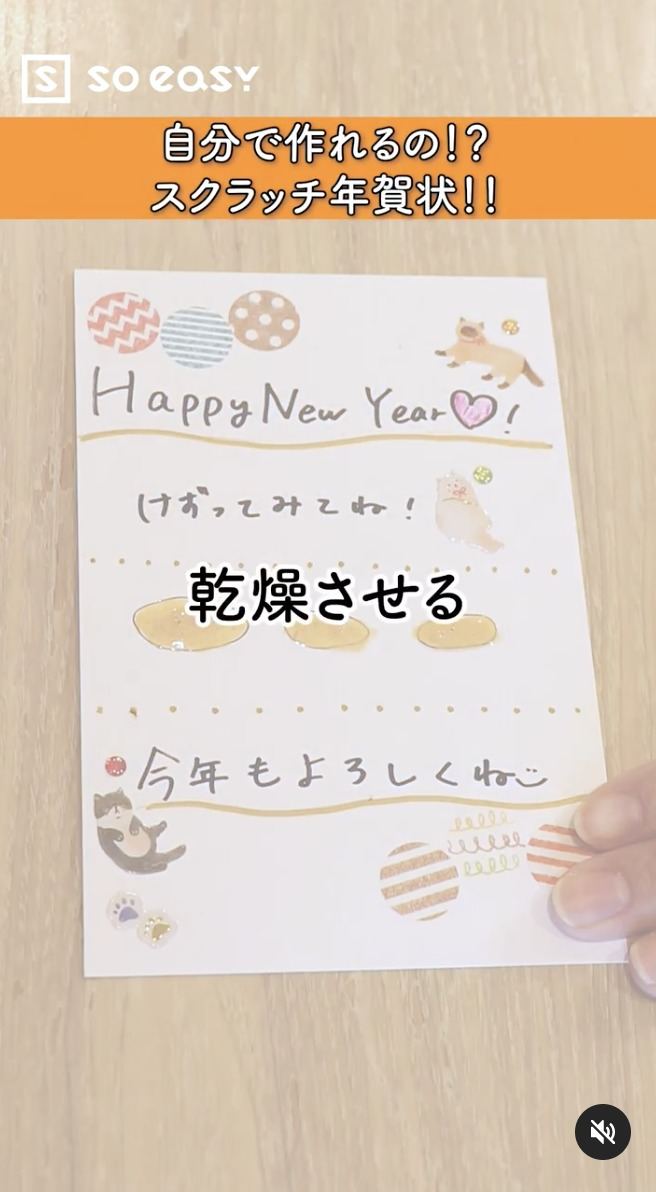 S SO EASY
自分で作れるの!?
スクラッチ年賀状!!
Happy New Year!
けずってみてね!
乾燥させる
今年もよろしくね